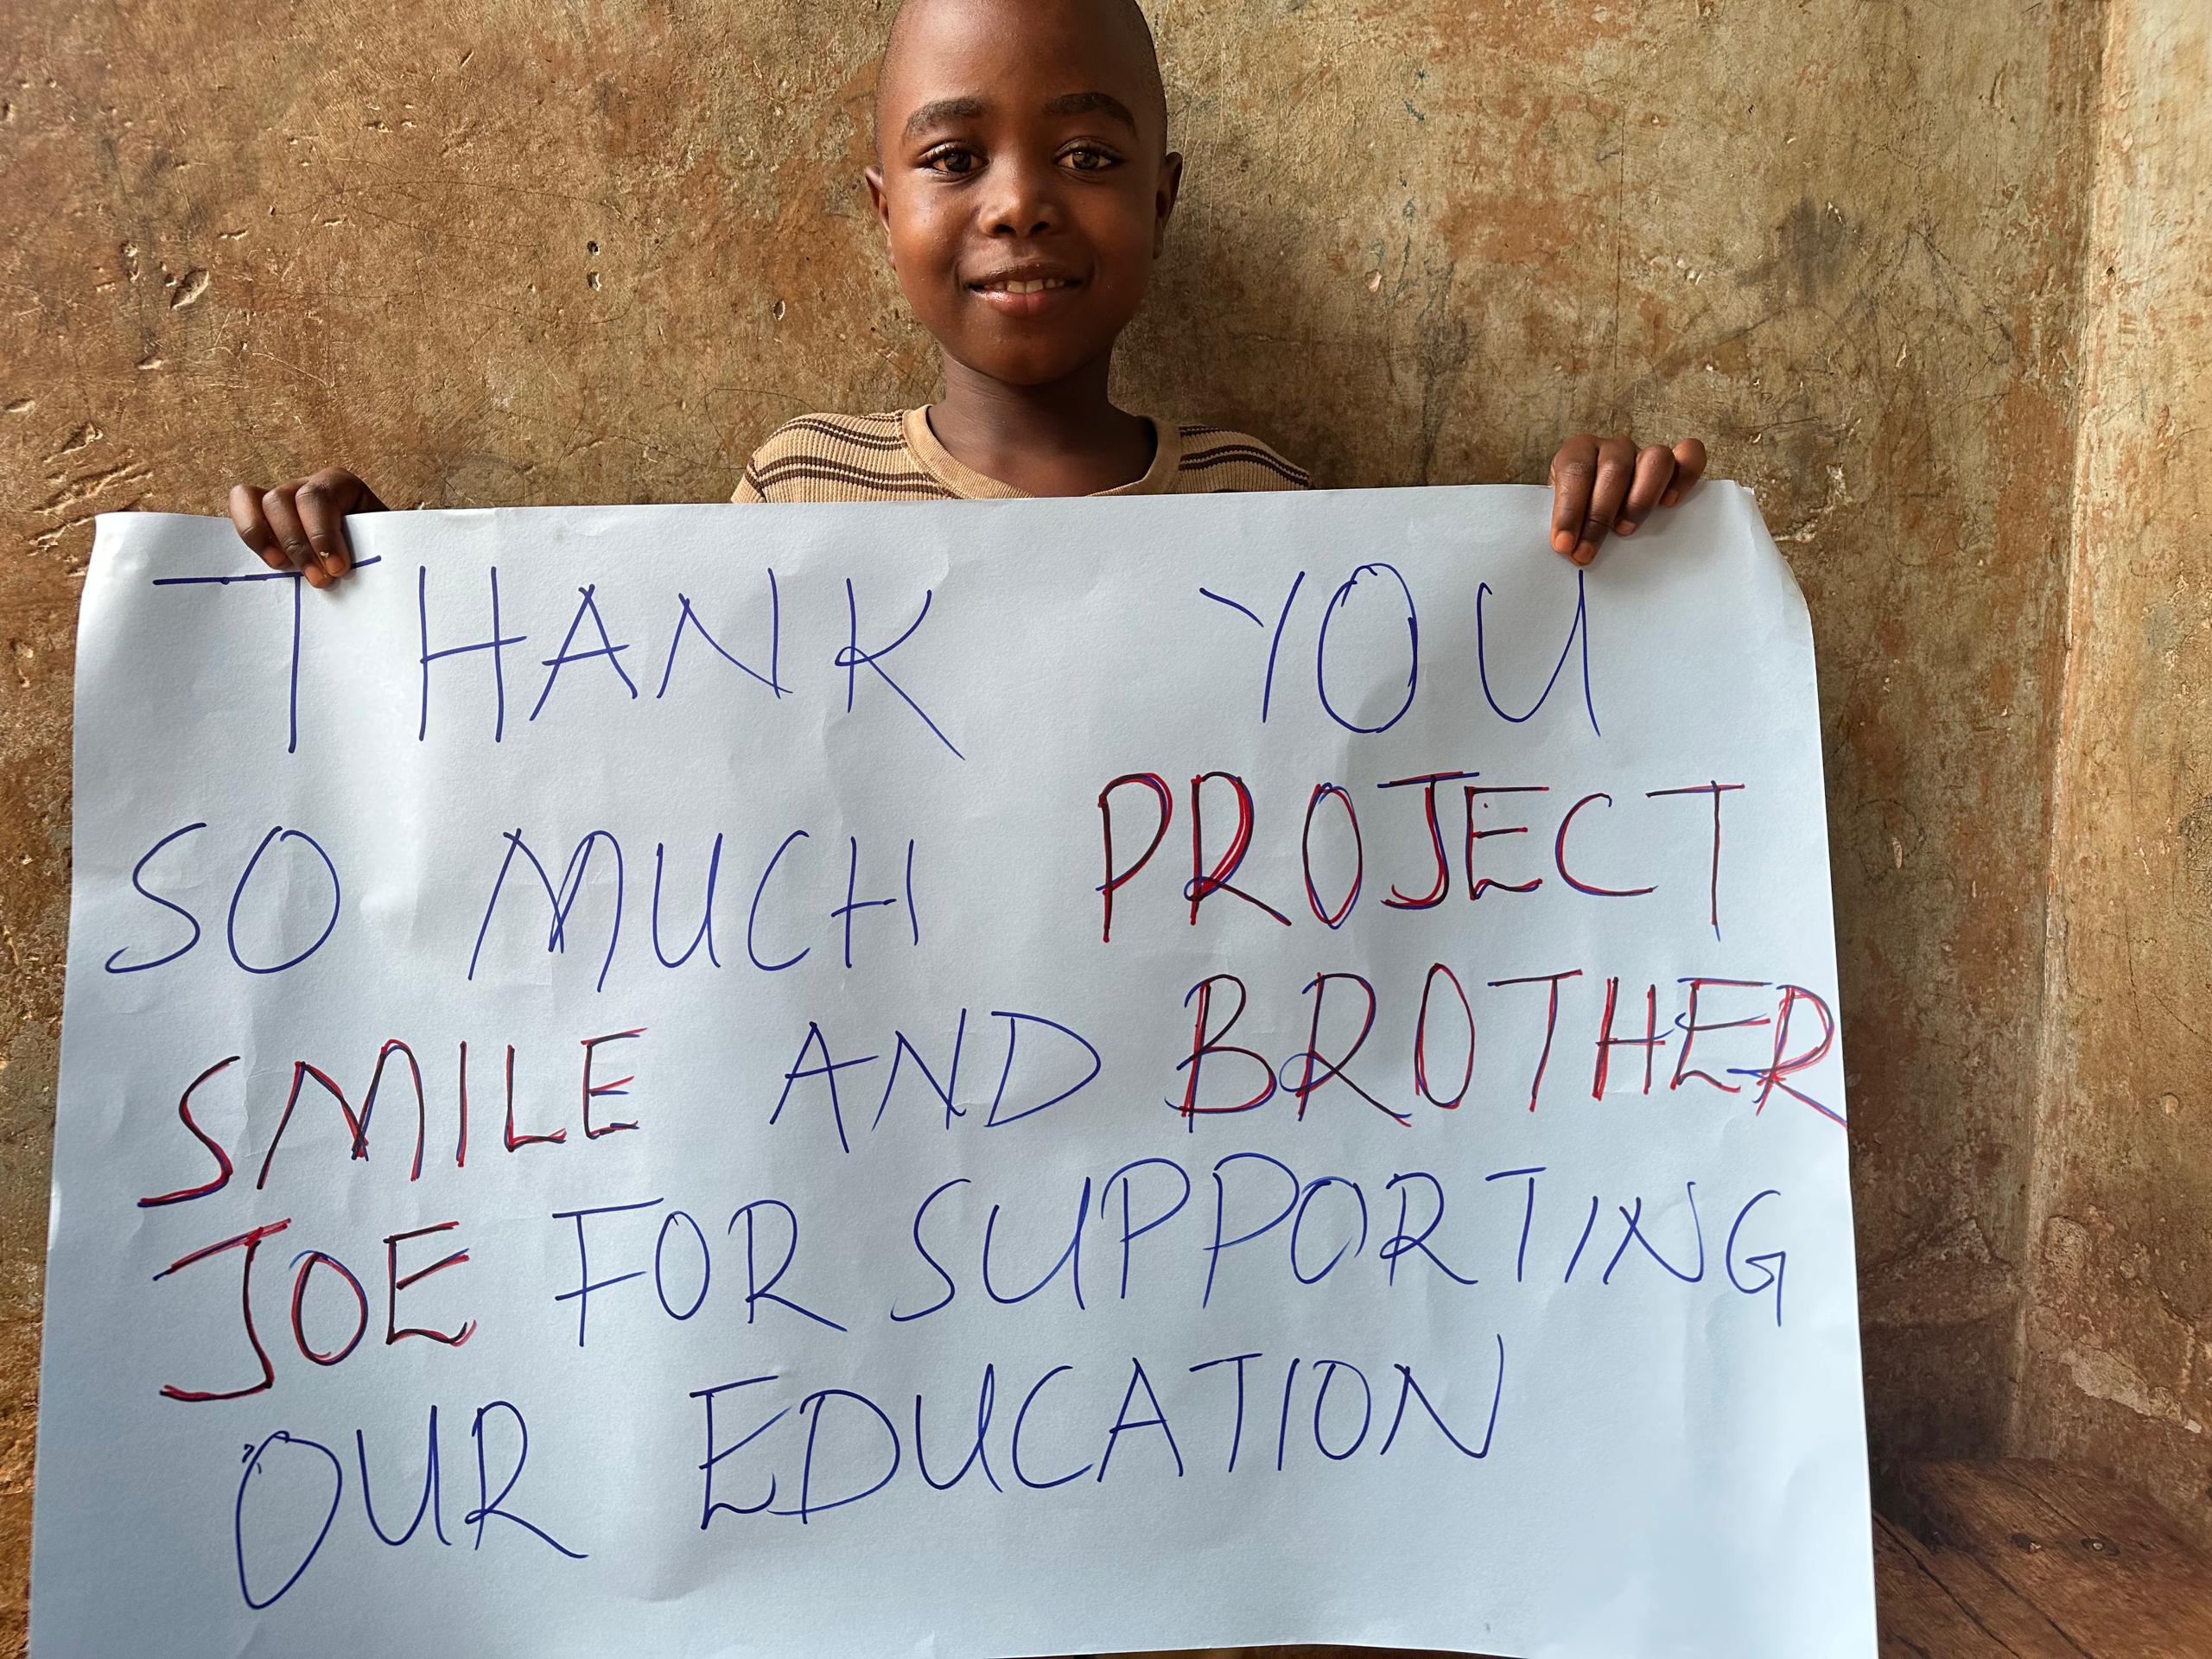 THANK YOU
SO MUCH PROJECT
SMILE AND BROTHER
JOE FOR SUPPORTING
OUR EDUCATION